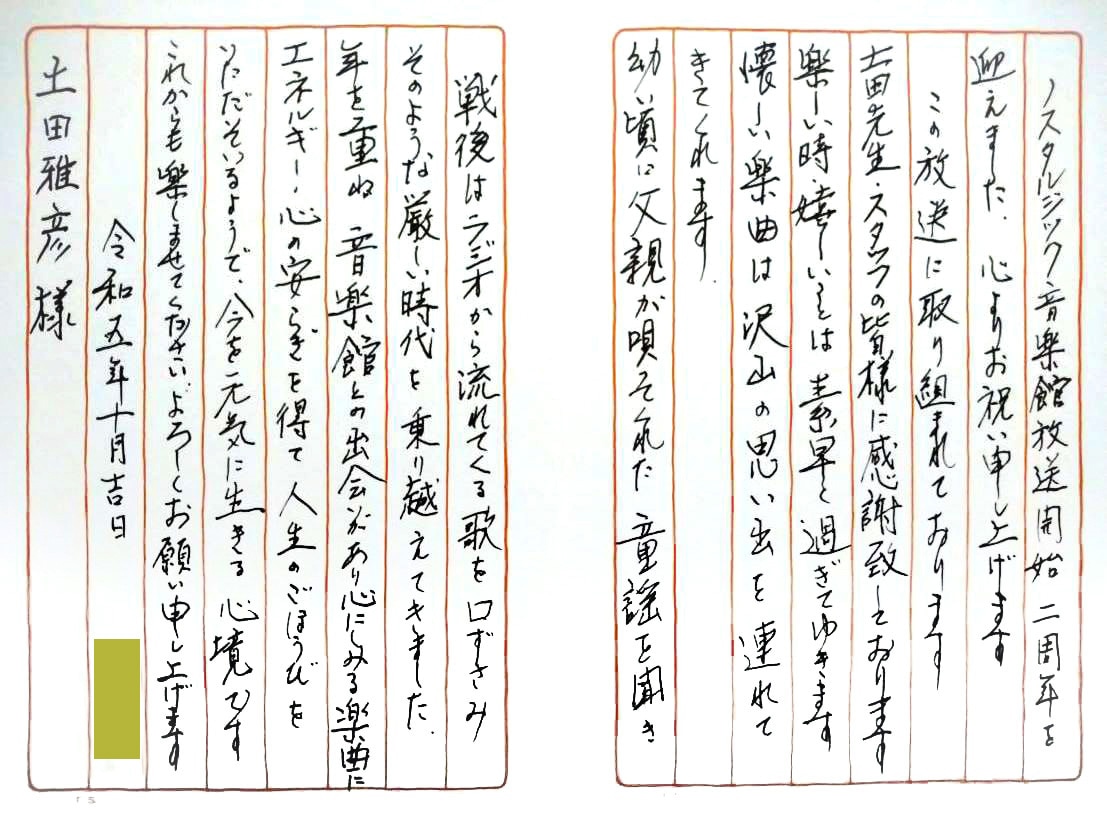 ノスタルジック音楽館放送開始二周年を
迎えました。心よりお祝い申し上げます
この放送に取り組まれております
土田先生・スタッフの皆様に感謝致しております
楽しい時・嬉しいときは素早く過ぎてゆきます
懐しい楽曲は沢山の思い出を連れて
きてくれます。
幼い頃に父親が唄ってくれた童謡を聞き
戦後はラジオから流れてくる歌を口ずさみ
そのような厳しい時代を乗り越えてきました。
年を重ね 音楽館との出会いがあり心にしみる楽曲に
エネルギー・心の安らぎを得て人生のごほうびを
いただいているようで、今を元気に生きる心境です
これからも楽しませてくださいよろしくお願い申し上げます
令和五年十月吉日
土田雅彦様